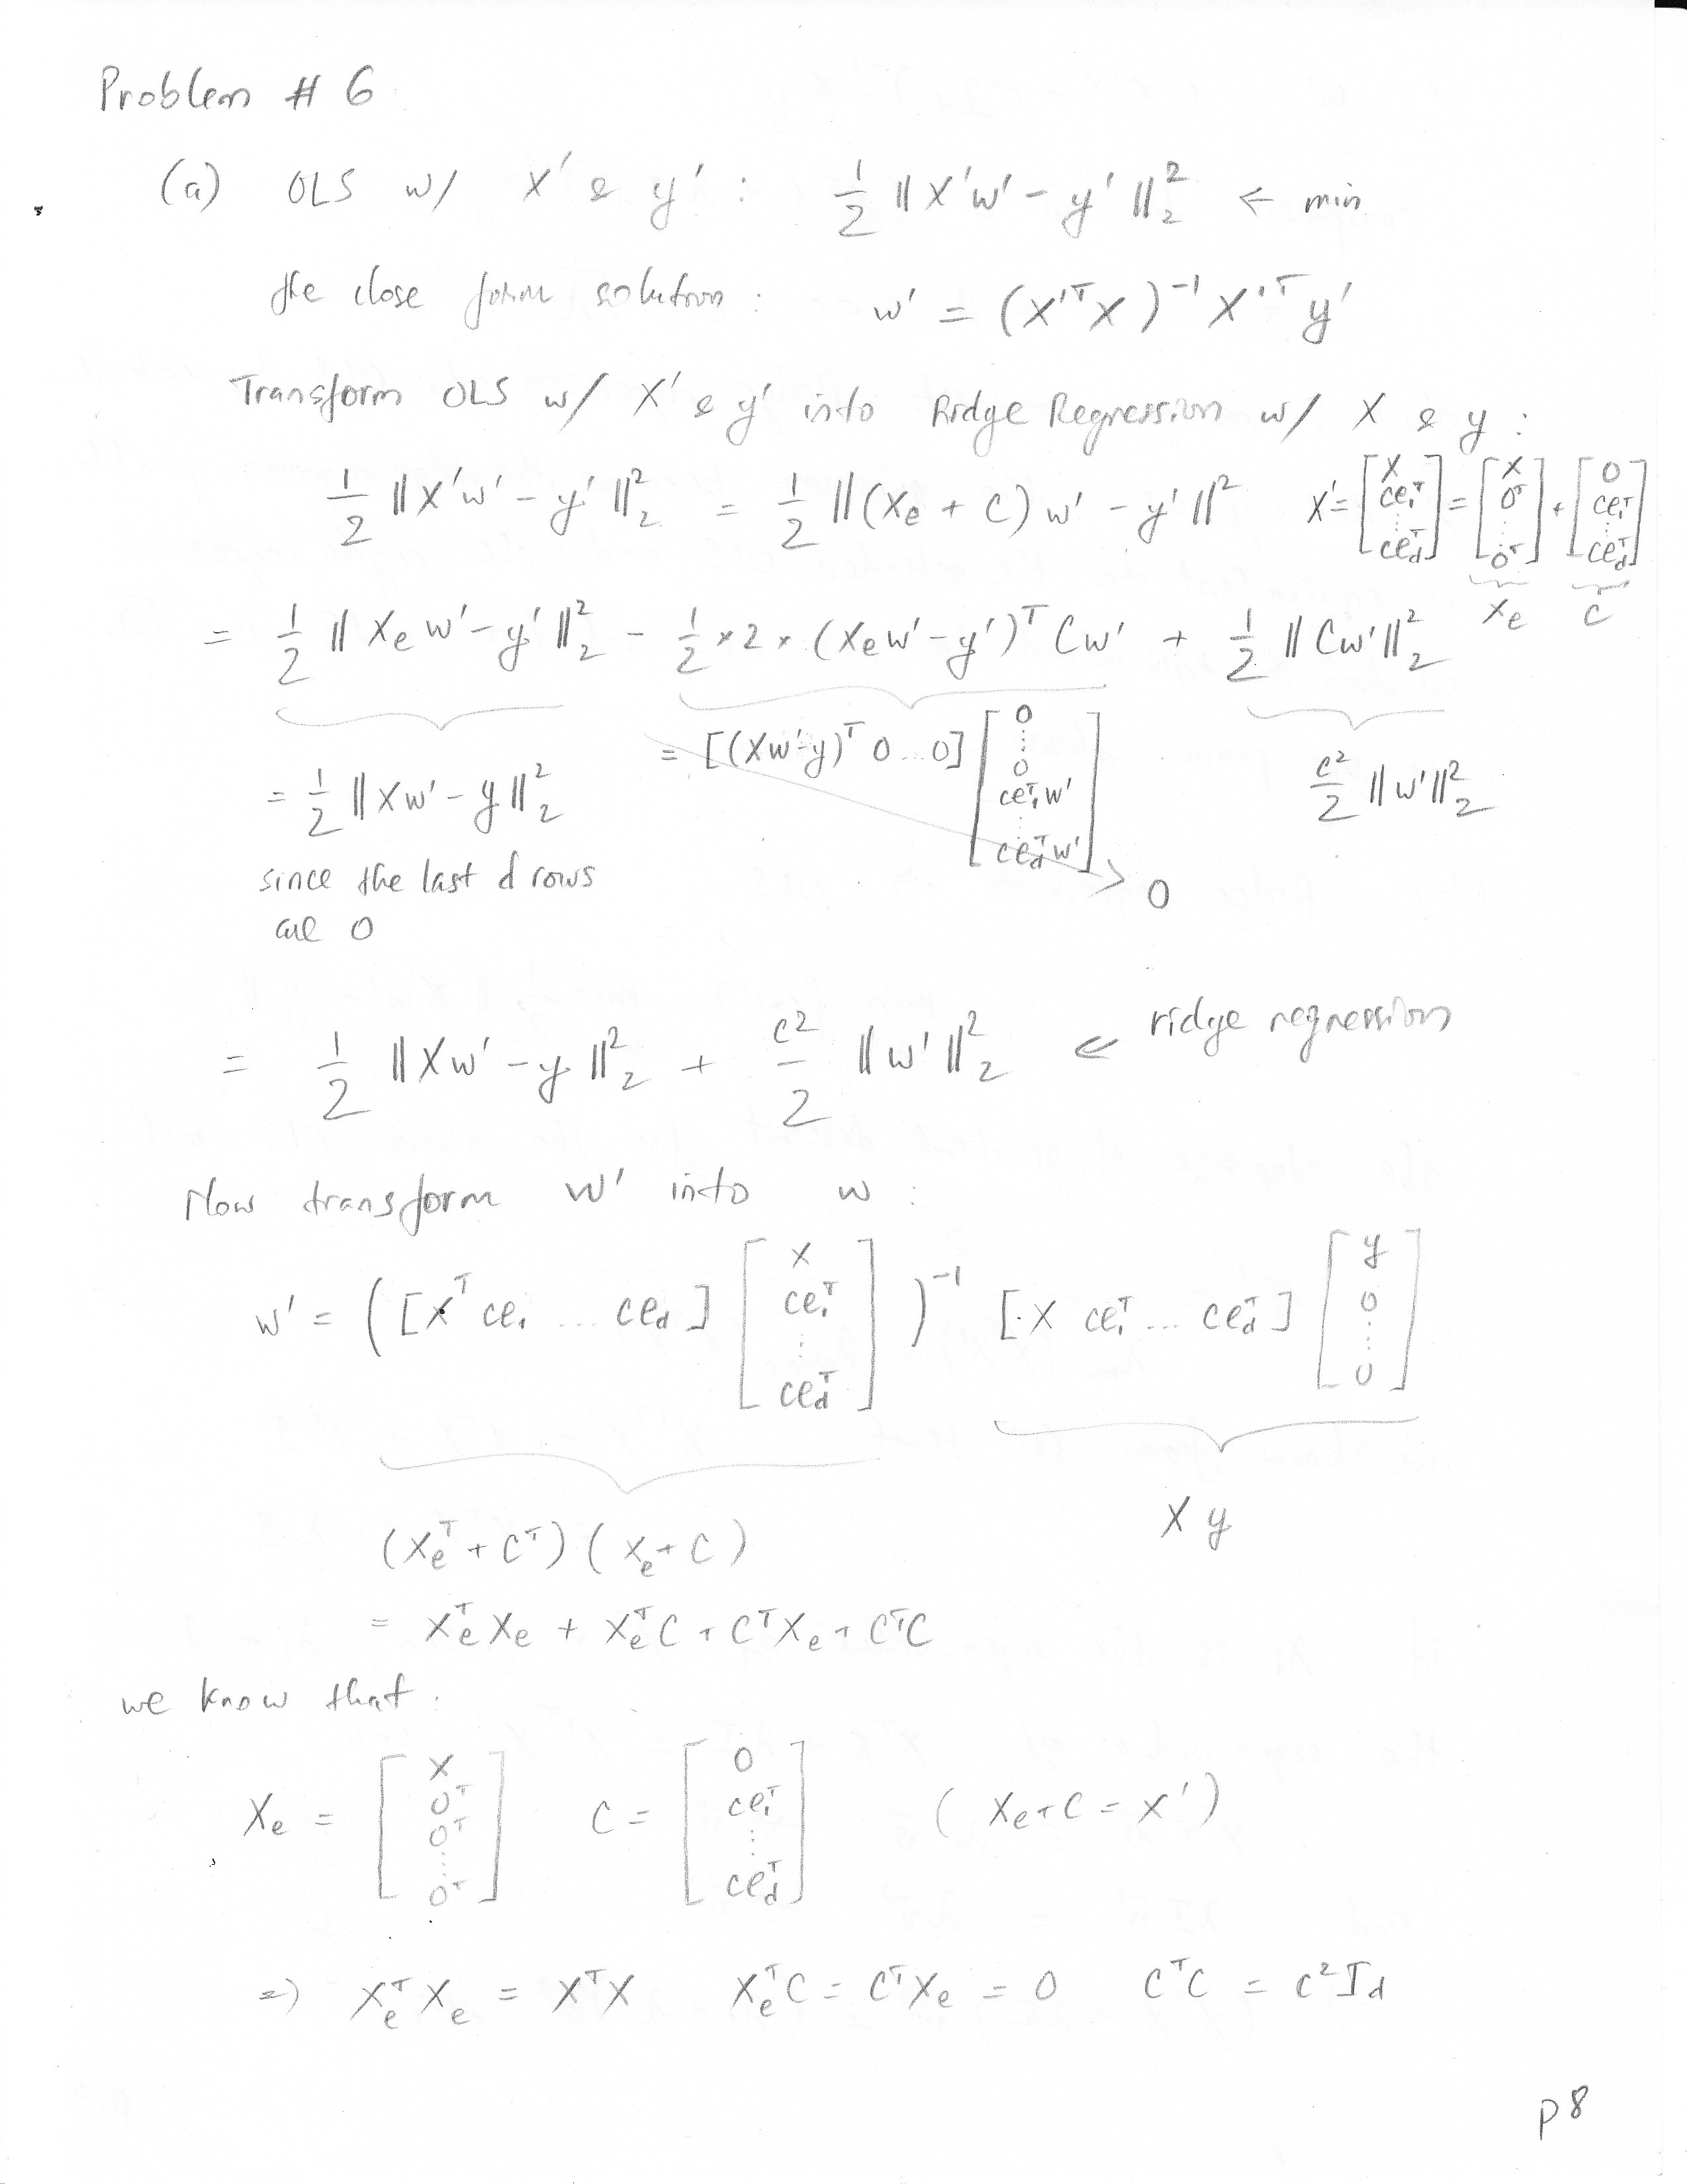 Problem # 6
(a) OLS w/ X' & y' : 1/2 ‖X'w' - y'‖₂² ← min
the close form solution : w' = (X'ᵀX)⁻¹ X'ᵀ y'
Transform OLS w/ X' & y' into Ridge Regression w/ X & y :
1/2 ‖X'w' - y'‖₂² = 1/2 ‖(Xe + C) w' - y'‖² X' = [X ce₁ᵀ ⋮ ce_dᵀ] = [X 0ᵀ ⋮ 0ᵀ] + [0 ce₁ᵀ ⋮ ce_dᵀ]
Xe C
= 1/2 ‖Xe w' - y'‖₂² - 1/2 × 2 × (Xe w' - y')ᵀ C w' + 1/2 ‖Cw'‖₂²
= 1/2 ‖Xw' - y‖₂² = [(Xw' - y)ᵀ 0 ... 0] [0 ⋮ 0 ce₁ᵀw' ⋮ ce_dᵀw'] → 0 c²/2 ‖w'‖₂²
since the last d rows
are 0
= 1/2 ‖Xw' - y‖₂² + c²/2 ‖w'‖₂² ← ridge regression
Now transform w' into w :
w' = ([Xᵀ ce₁ ... ce_d] [X ce₁ᵀ ⋮ ce_dᵀ])⁻¹ [X ce₁ᵀ ... ce_dᵀ] [y 0 ⋮ 0]
X y
(Xeᵀ + Cᵀ) (Xe + C)
= Xeᵀ Xe + Xeᵀ C + Cᵀ Xe + CᵀC
we know that :
Xe = [X 0ᵀ 0ᵀ ⋮ 0ᵀ] C = [0 ce₁ᵀ ⋮ ce_dᵀ] ( Xe + C = X' )
⇒ Xeᵀ Xe = XᵀX Xeᵀ C = Cᵀ Xe = 0 CᵀC = c² I_d
p 8